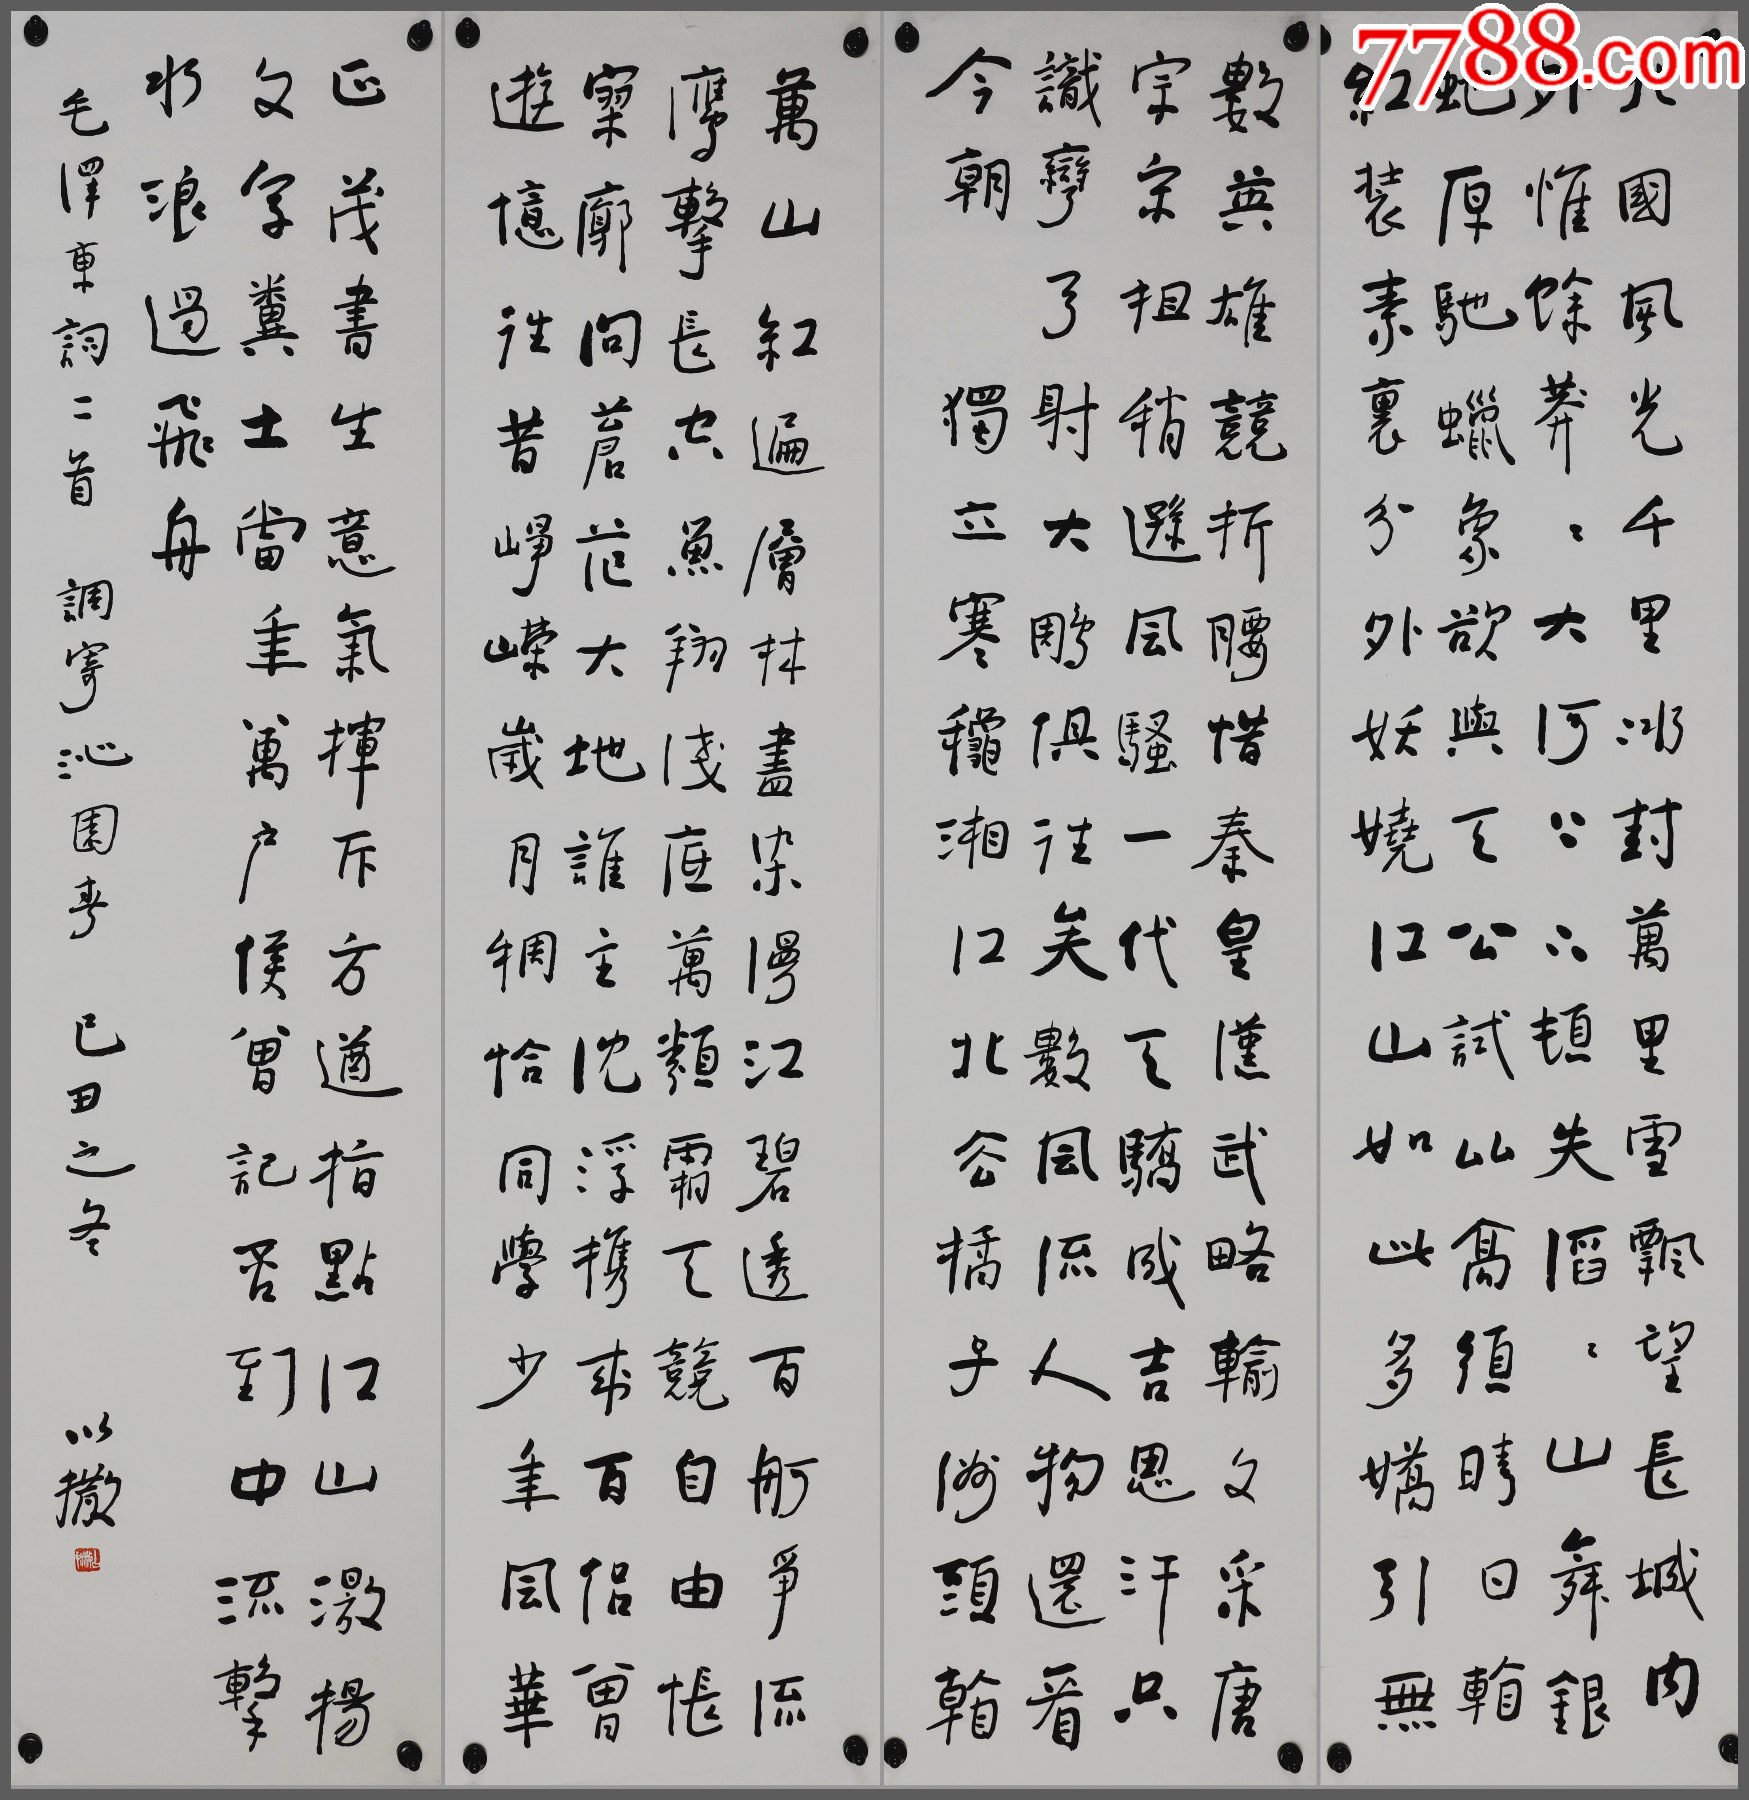 7788.com
北國風光千里冰封萬里雪飄望長城内
外惟餘莽〻大河上下頓失滔〻山舞銀
蛇原馳蠟象欲與天公試比高須晴日看
紅裝素裹分外妖嬈江山如此多嬌引無
數英雄競折腰惜秦皇漢武略輸文采唐
宗宋祖稍遜風騷一代天驕成吉思汗只
識彎弓射大雕俱往矣數風流人物還看
今朝 獨立寒秋湘江北去橘子洲頭看
萬山紅遍層林盡染漫江碧透百舸爭流
鷹擊長空魚翔淺底萬類霜天競自由悵
寥廓問蒼茫大地誰主沈浮攜來百侶曾
遊憶往昔崢嶸歲月稠恰同學少年風華
正茂書生意氣揮斥方遒指點江山激揚
文字糞土當年萬户侯曾記否到中流擊
水浪遏飛舟
毛澤東詞二首 調寄沁園春 己丑之冬 以撒